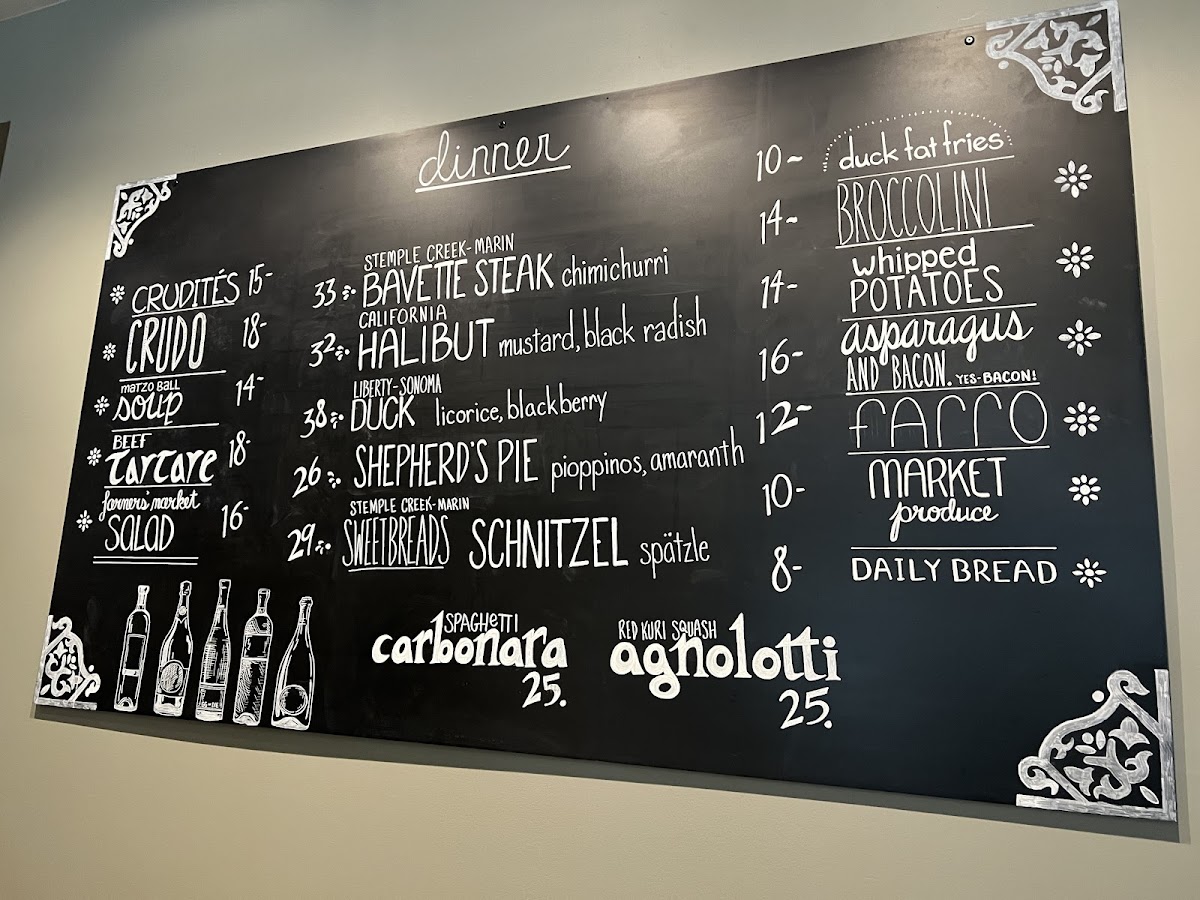 dinner
CRUDITÉS 15-
CRUDO 18-
MATZO BALL
SOUP 14-
BEEF
TARTARE 18-
farmers' market
SALAD 16-
STEMPLE CREEK-MARIN
33 BAVETTE STEAK chimichurri
CALIFORNIA
32 HALIBUT mustard, black radish
LIBERTY-SONOMA
38 DUCK licorice, blackberry
26 SHEPHERD'S PIE pioppinos, amaranth
STEMPLE CREEK-MARIN
29 SWEETBREADS SCHNITZEL spätzle
SPAGHETTI
carbonara
25.
RED KURI SQUASH
agnolotti
25.
10~ duck fat fries
14~ BROCCOLINI
14- whipped
POTATOES
16- asparagus
AND BACON. YES-BACON!
12- farro
10- MARKET
produce
8- DAILY BREAD